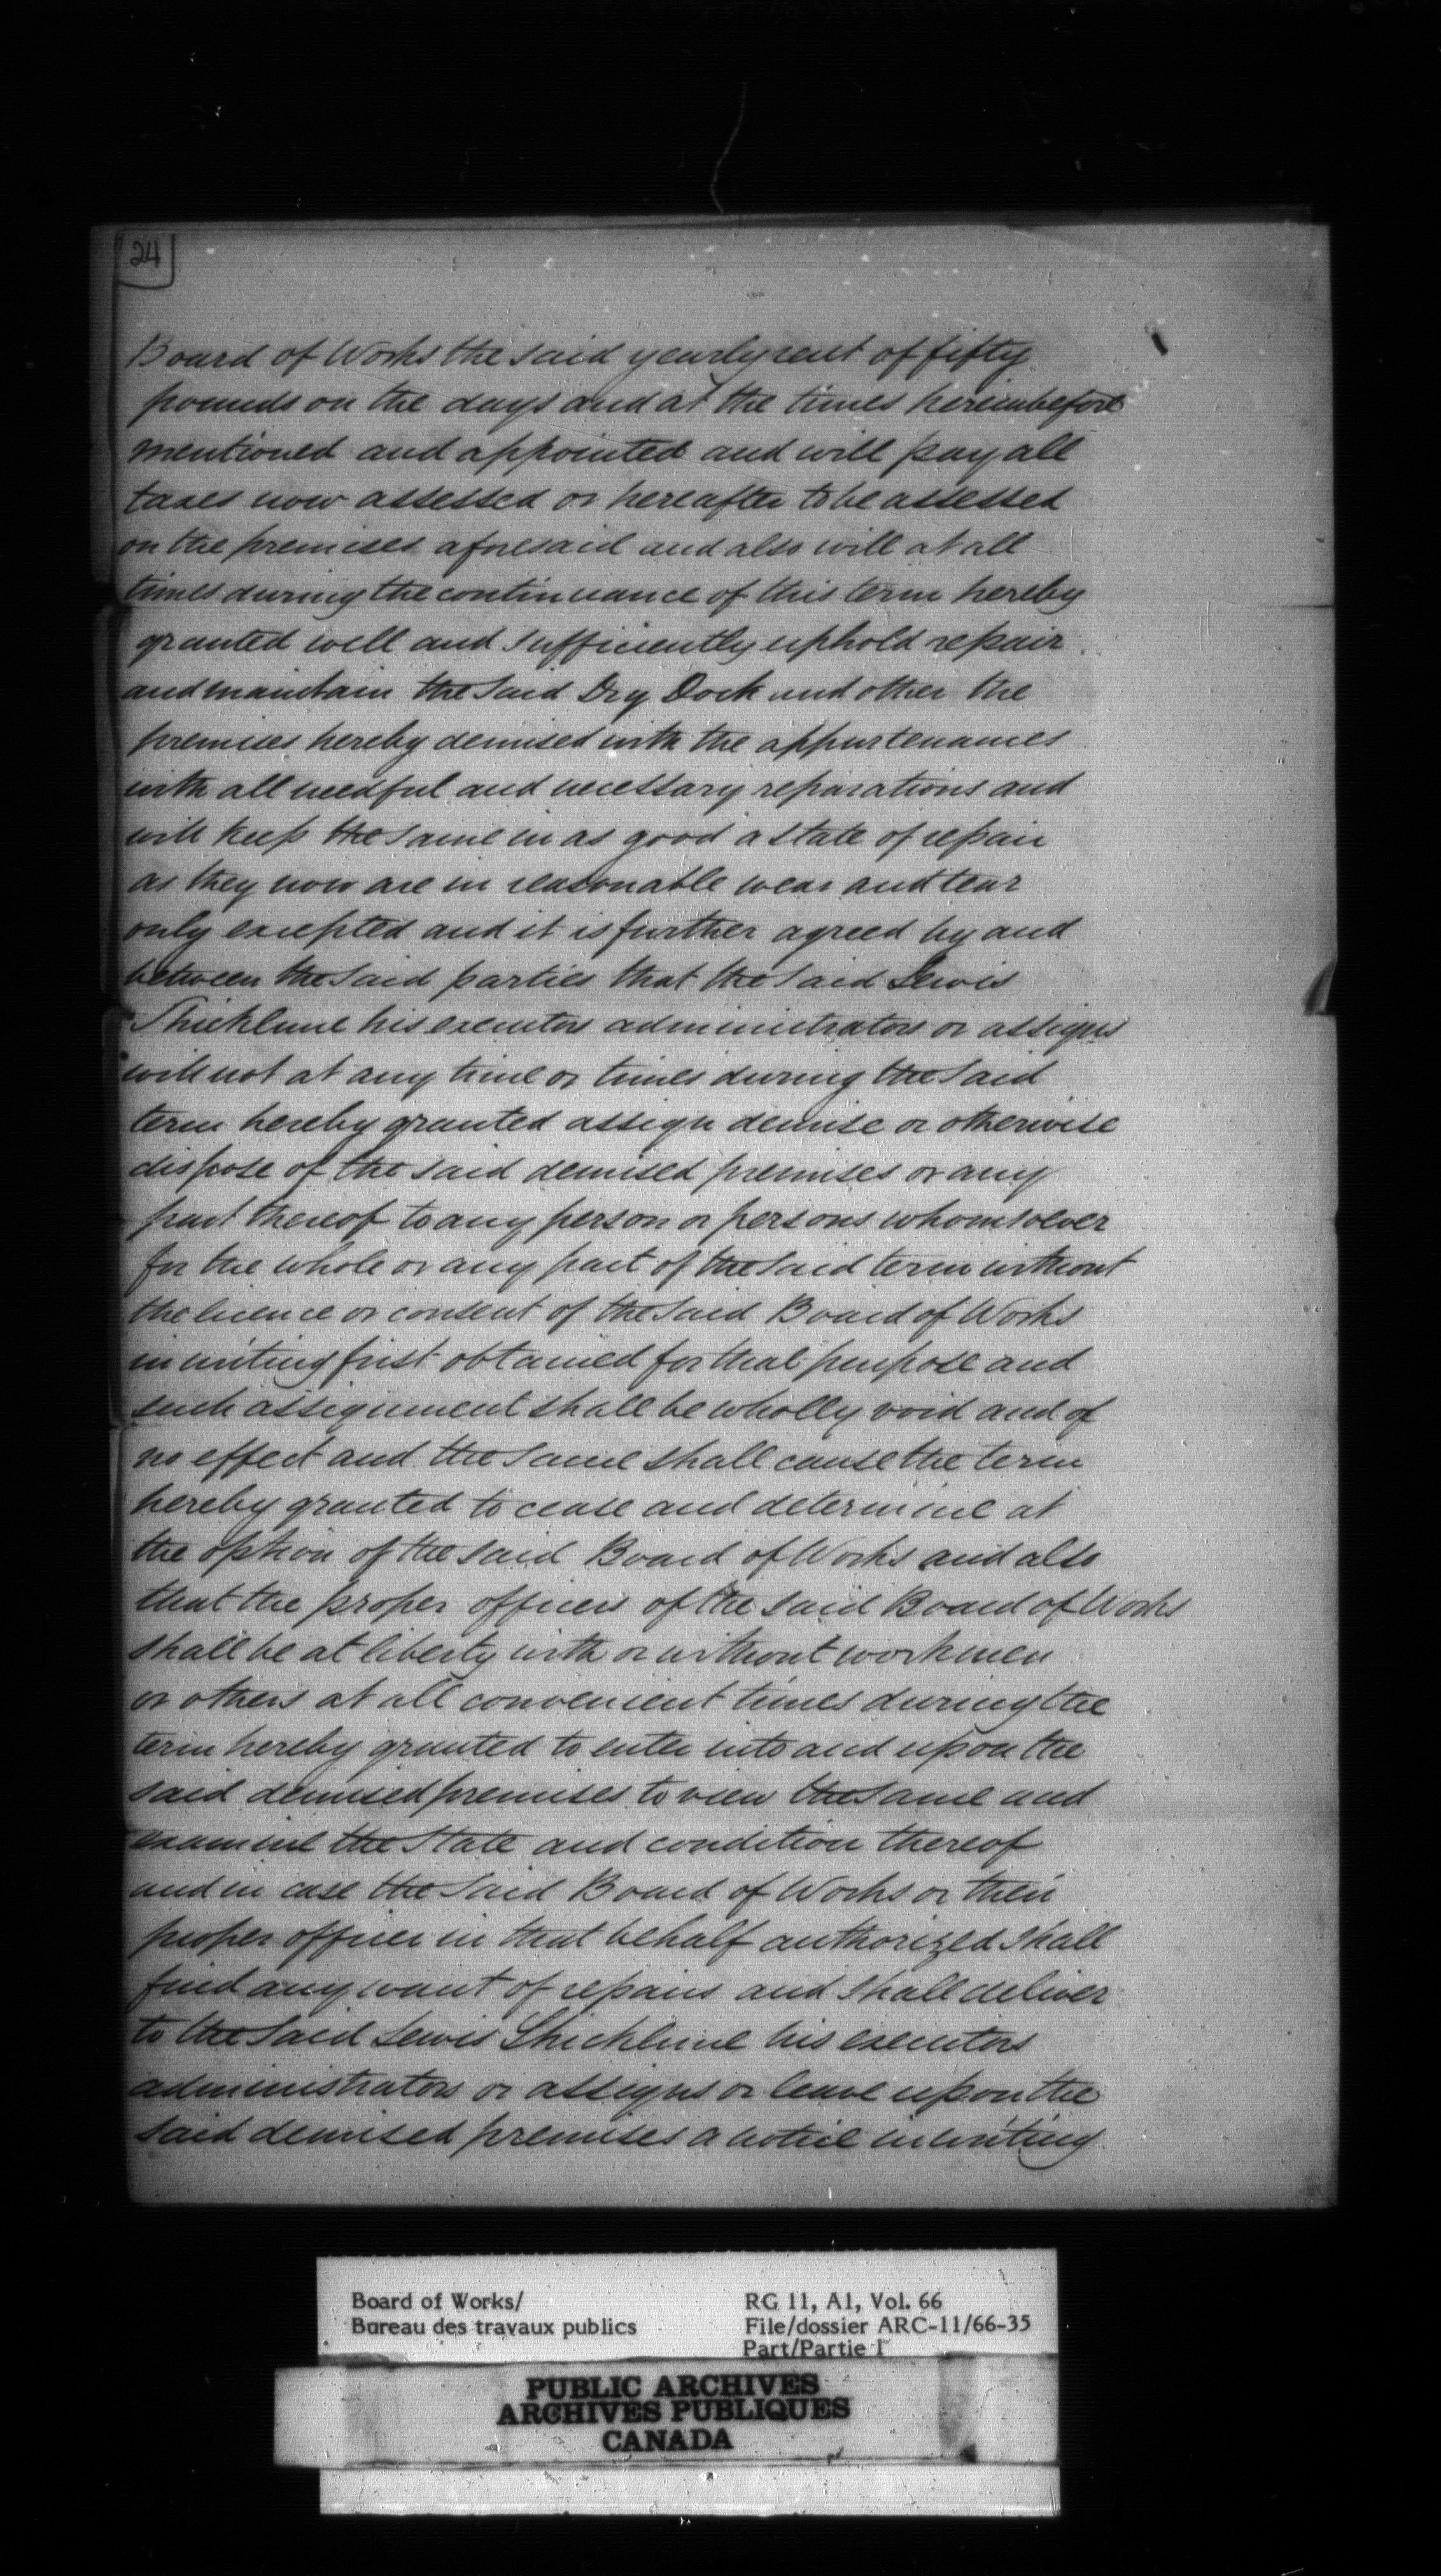 24
Board of Works the said yearly rent of fifty
pounds on the days and at the times hereinbefore
mentioned and appointed and will pay all
taxes now assessed or hereafter to be assessed
on the premises aforesaid and also will at all
times during the continuance of this term hereby
granted well and sufficiently uphold repair
and maintain the said Dry Dock and other the
premises hereby demised with the appurtenances
with all needful and necessary reparations and
will keep the same in as good a state of repair
as they now are in reasonable wear and tear
only excepted and it is further agreed by and
between the said parties that the said Lewis
Shicklune his executors administrators or assigns
will not at any time or times during the said
term hereby granted assign demise or otherwise
dispose of the said demised premises or any
part thereof to any person or persons whomsoever
for the whole or any part of the said term without
the licence or consent of the said Board of Works
in writing first obtained for that purpose and
such assignment shall be wholly void and of
no effect and the same shall cause the term
hereby granted to cease and determine at
the option of the said Board of Works and also
that the proper officers of the said Board of Works
shall be at liberty with or without workmen
or others at all convenient times during the
term hereby granted to enter into and upon the
said demised premises to view the same and
examine the state and condition thereof
and in case the said Board of Works or their
proper officer in that behalf authorized shall
find any want of repairs and shall deliver
to the said Lewis Shicklune his executors
administrators or assigns or leave upon the
said demised premises a notice in writing
Board of Works/
Bureau des travaux publics
RG 11, A1, Vol. 66
File/dossier ARC-11/66-35
Part/Partie 1
PUBLIC ARCHIVES
ARCHIVES PUBLIQUES
CANADA